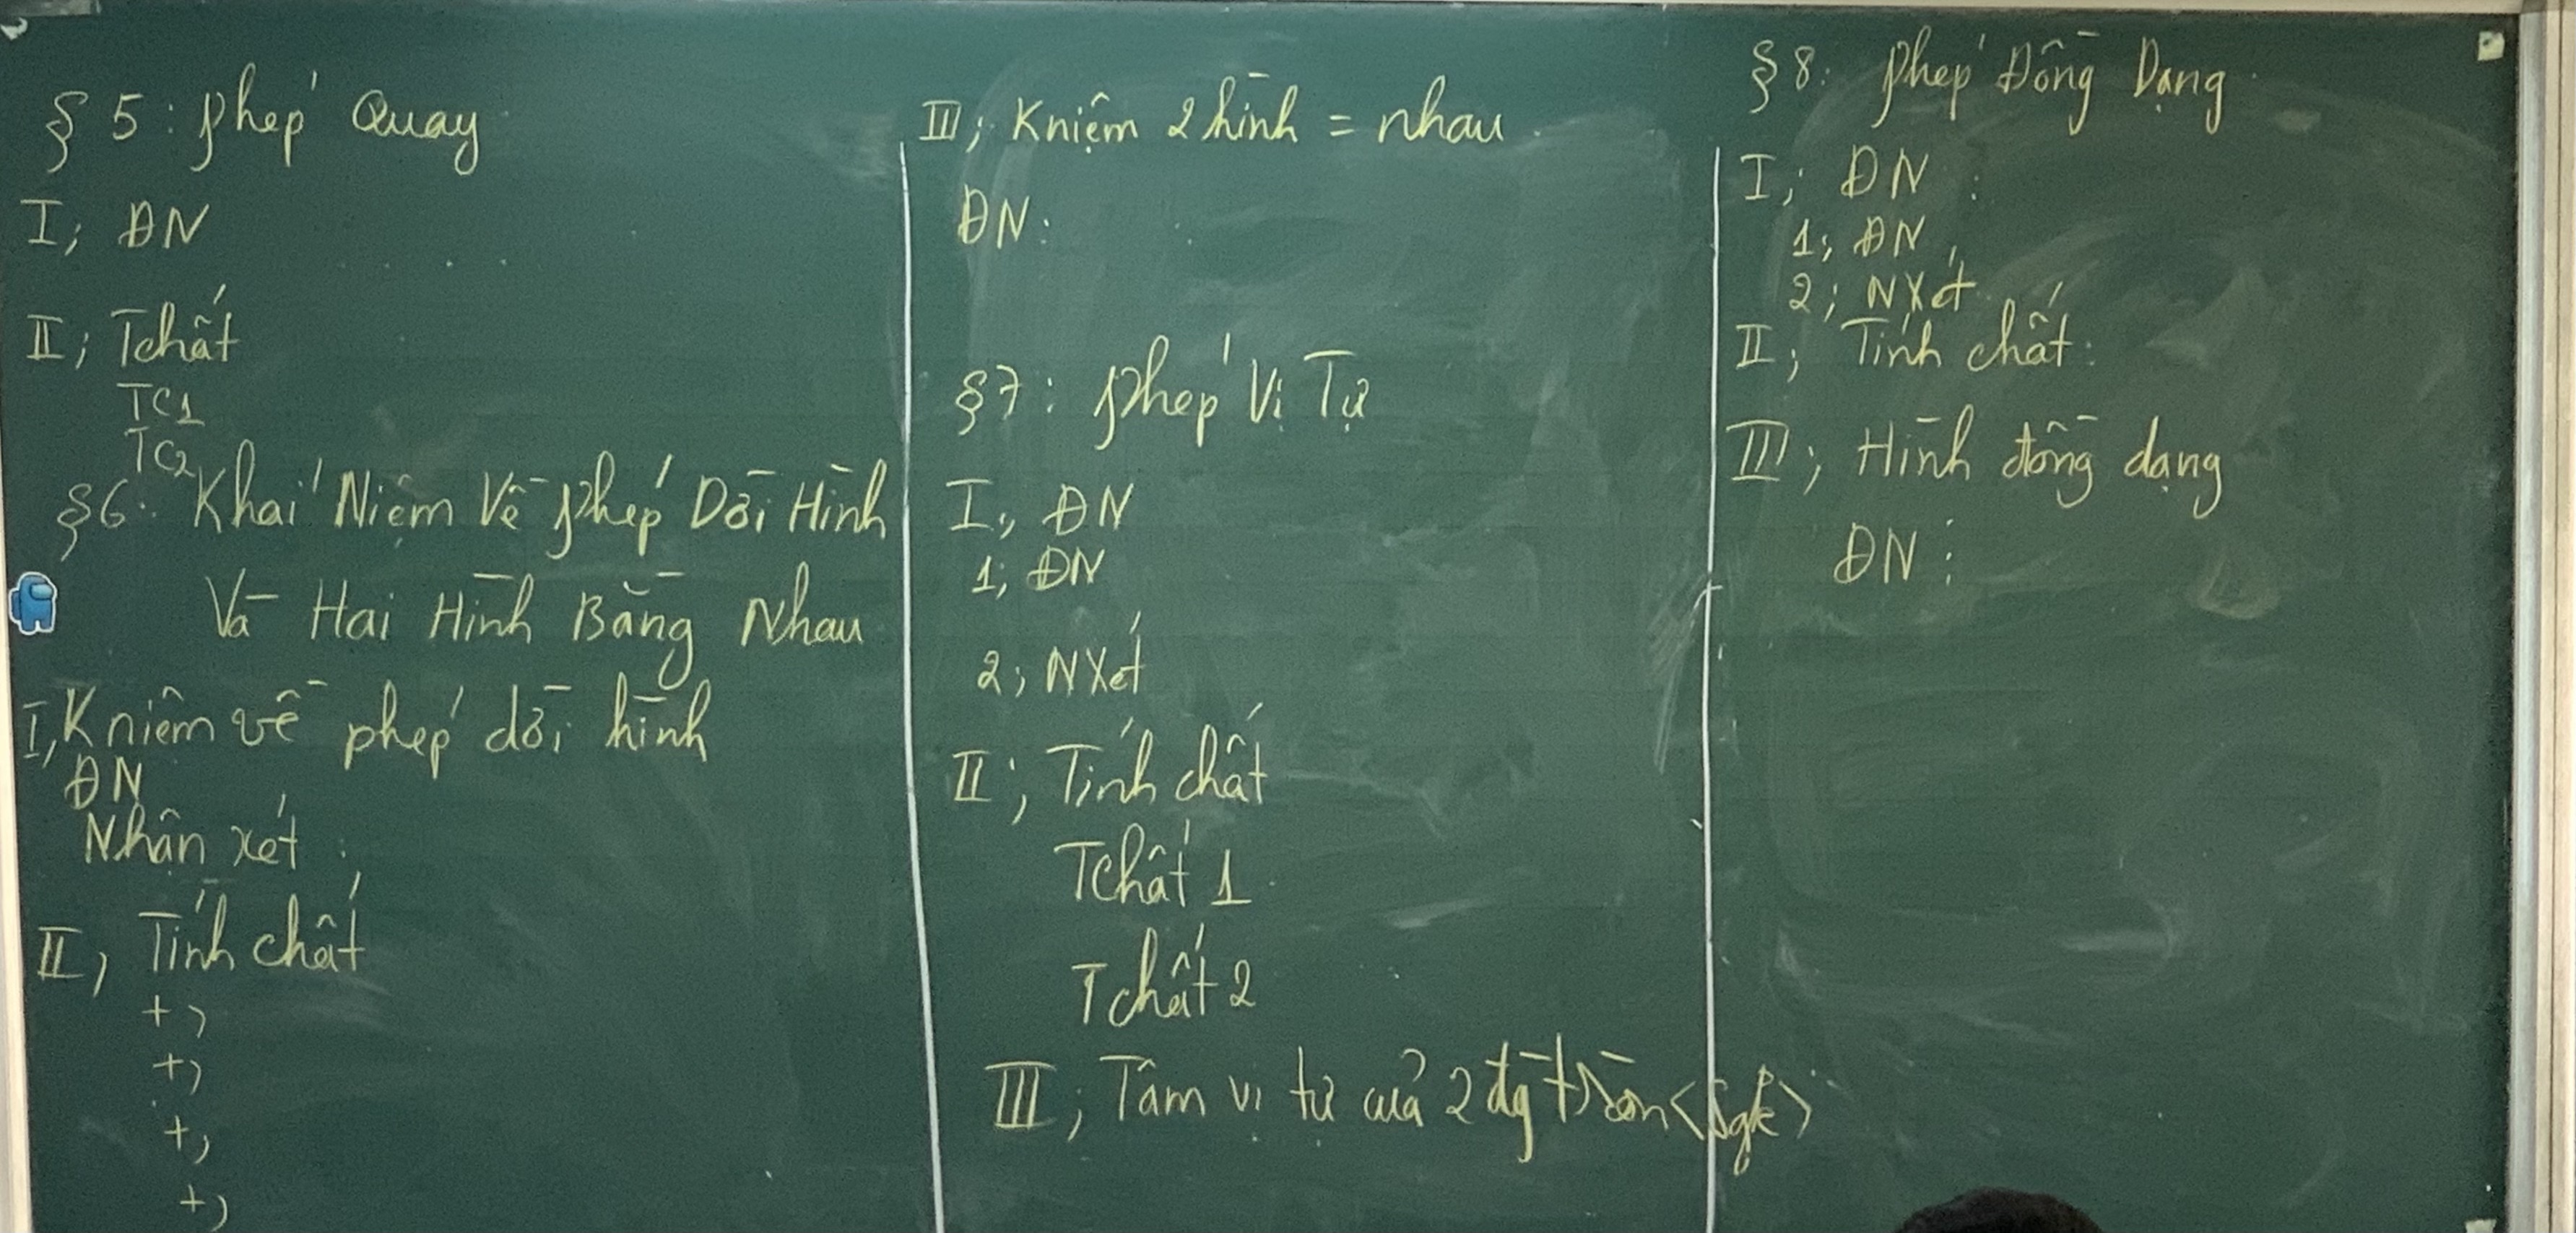 §5: Phép Quay
I; ĐN
II; Tchất
TC1
TC2
§6: Khái Niệm Về Phép Dời Hình
Và Hai Hình Bằng Nhau
I, Kniệm về phép dời hình
ĐN
Nhận xét:
II, Tính chất
+,
+,
+,
+,
III; Kniệm 2 hình = nhau.
ĐN:
§7: Phép Vị Tự
I; ĐN
1; ĐN
2; NXét
II; Tính chất
Tchất 1
Tchất 2
III; Tâm vị tự của 2 đg tròn <Sgk>
§8: Phép Đồng Dạng
I; ĐN:
1; ĐN
2; NXét
II; Tính chất:
III; Hình đồng dạng
ĐN: